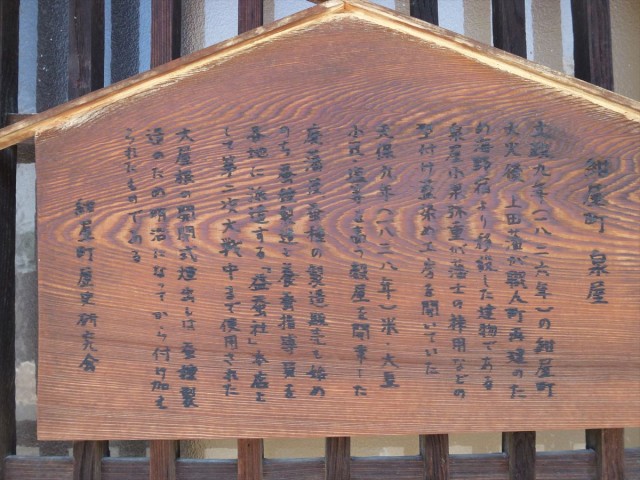 紺屋町 泉屋
文政九年(一八二六年)の紺屋町
大火後上田藩が職人町再建のた
め海野宿より移設した建物である
泉屋小泉弥重が藩士の裃用などの
型付け藍染め工房を開いていた
天保九年(一八三八年)米・大豆
小豆・塩等を商う穀屋を開業した
廃藩後蚕種の製造販売も始め
のち蚕種製造と養蚕指導員を
各地に派遣する「盛蚕社」本店と
して第二次大戦中まで使用された
大屋根の開閉式煙出しは蚕種製
造のため明治になってから付け加え
られたものである
紺屋町歴史研究会